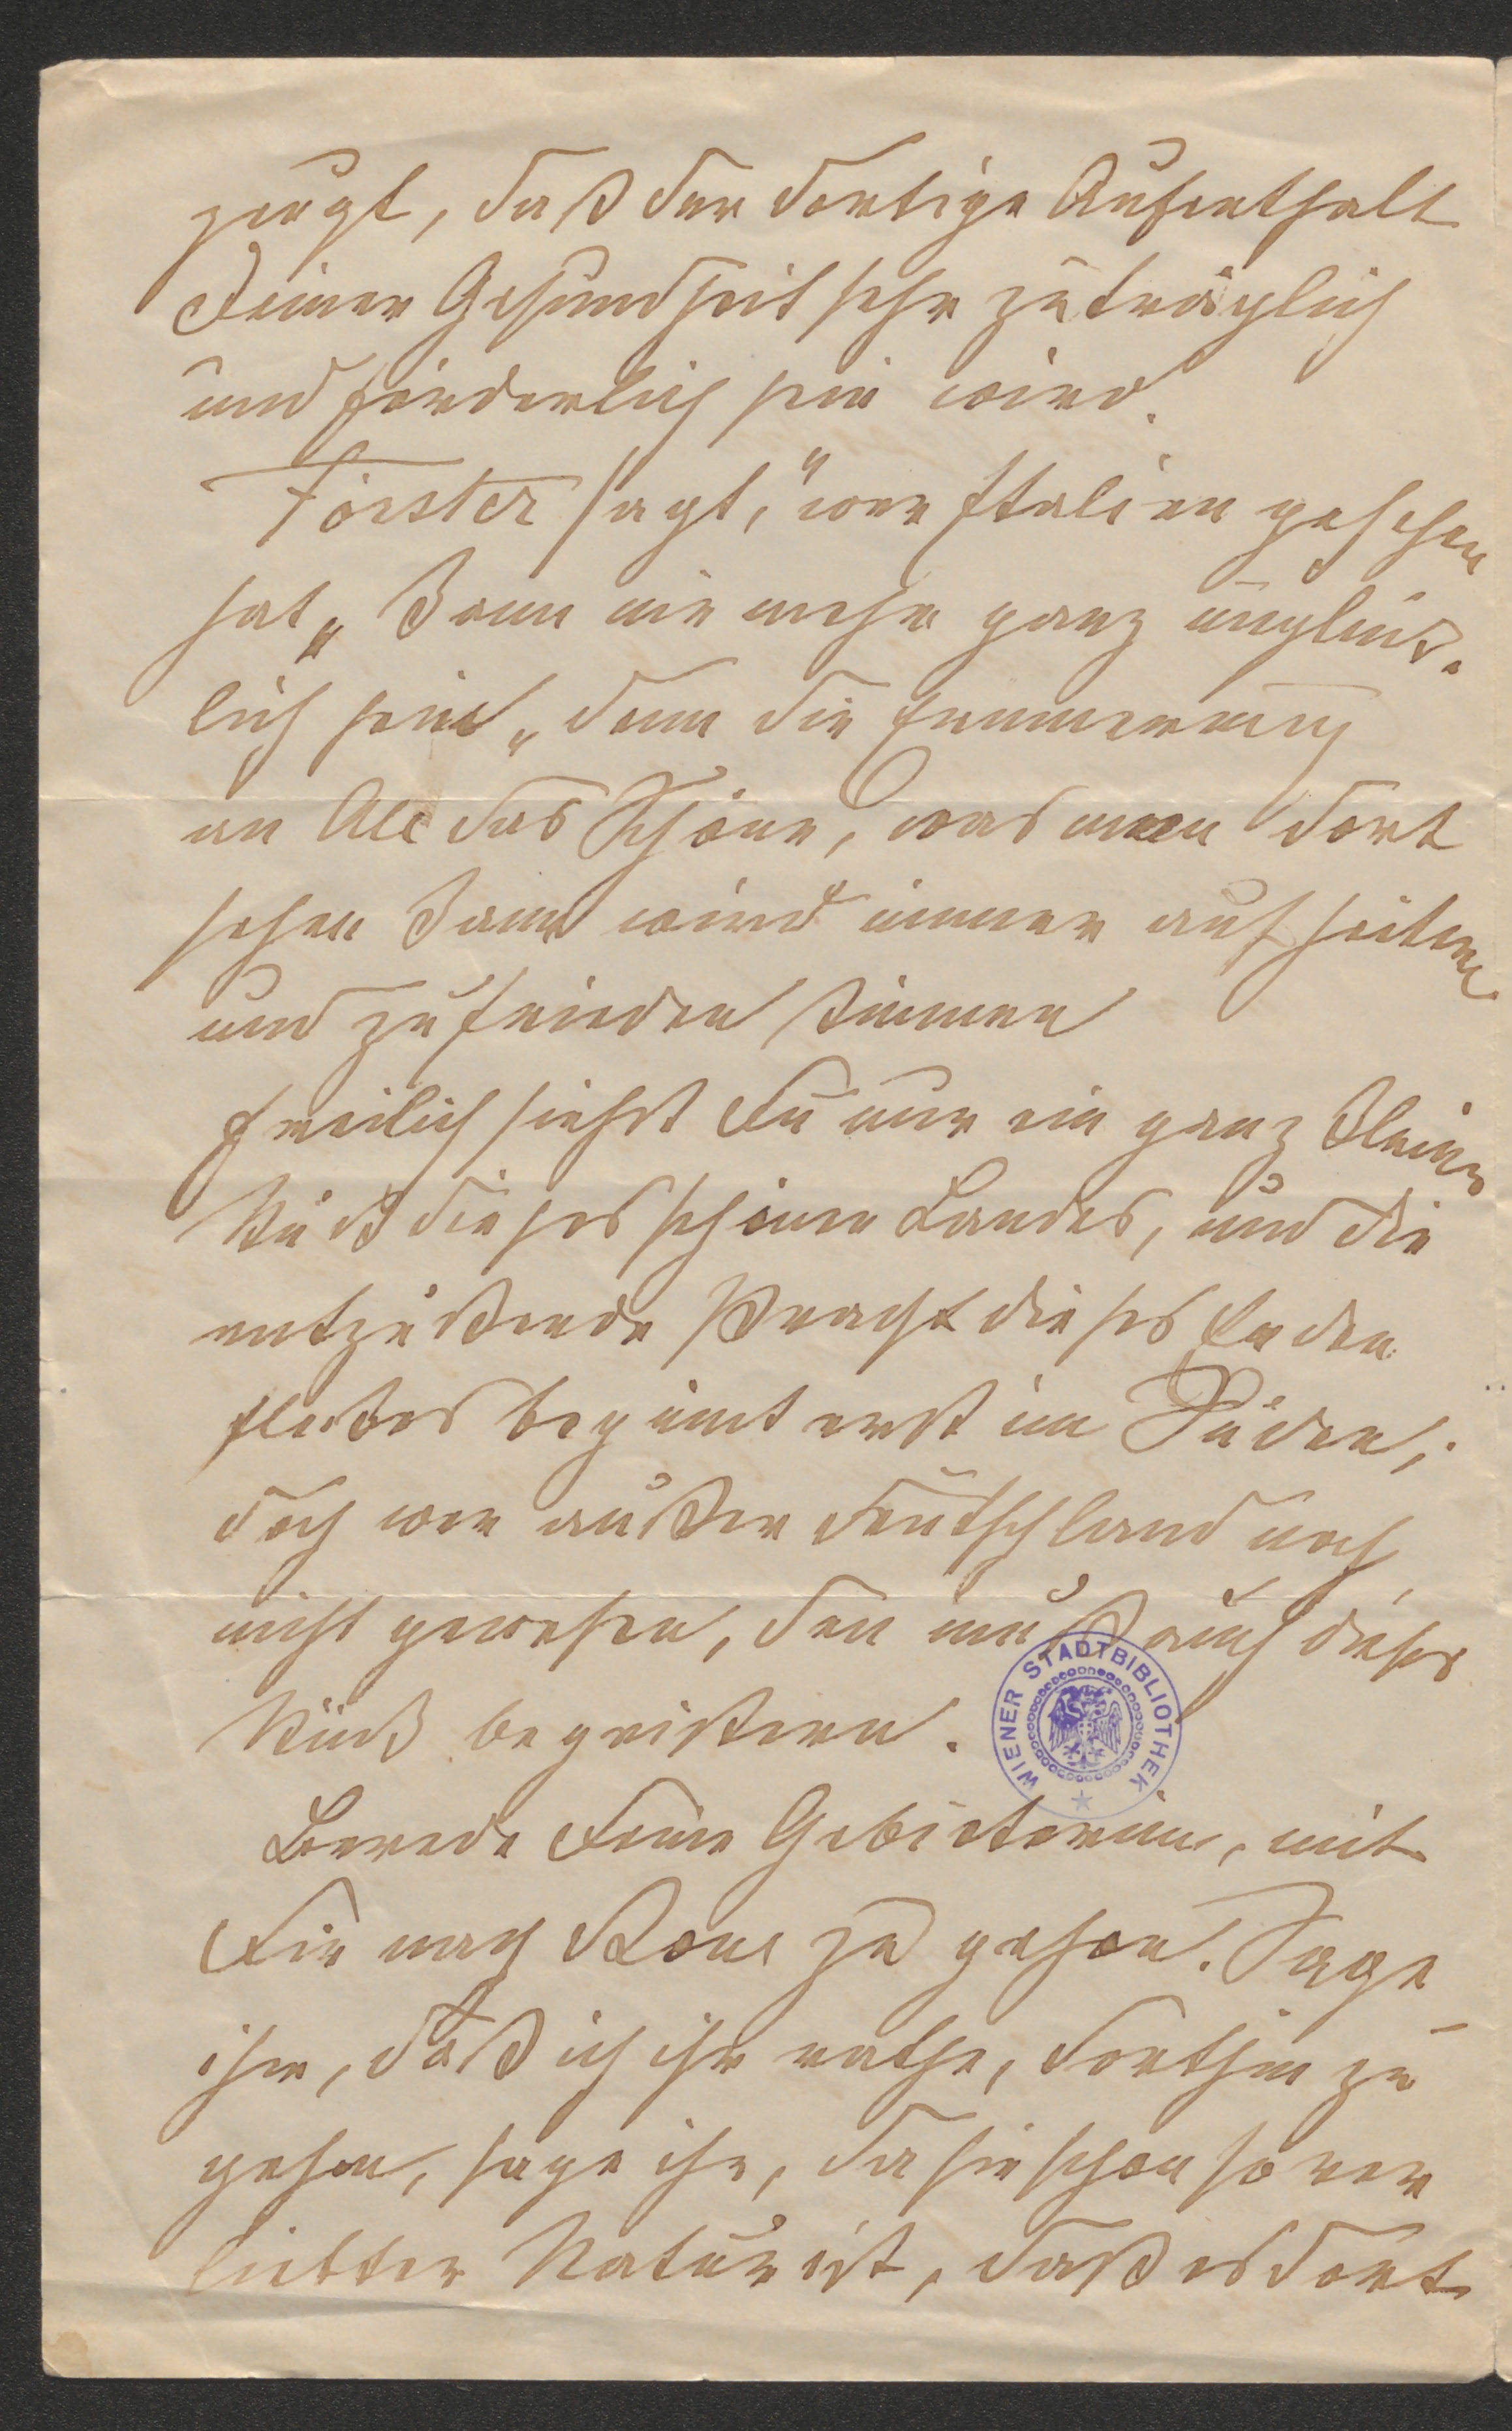 zeugt, daß der dortige Aufenthalt
Deiner Gesundheit sehr zuträglich
und förderlich sein wird.
Förster sagt, "wer Italien gesehen
hat „ kann nie mehr ganz unglück-
lich sein „ denn die Erinnerung
an All das Schöne, was man dort
sehen kann wird immer aufheitern
und zufrieden stimmen
Freilich siehst Du nur ein ganz kleines
Stück dieses schönen Landes, und die
entzückende Pracht dieses Erden
fleckes beginnt erst im Süden,
doch wer außer Deutschland noch
nicht gewesen, den muß auch dieses
Stück begeistern.
WIENER STADTBIBLIOTHEK
Berede Deine Gebieterin, mit
Dir nach Rom zu gehen. Sage
ihr, daß ich ihr rathe, dorthin zu
gehen, sage ihr, da sie schon so ver
liebter Natur ist, daß es dort